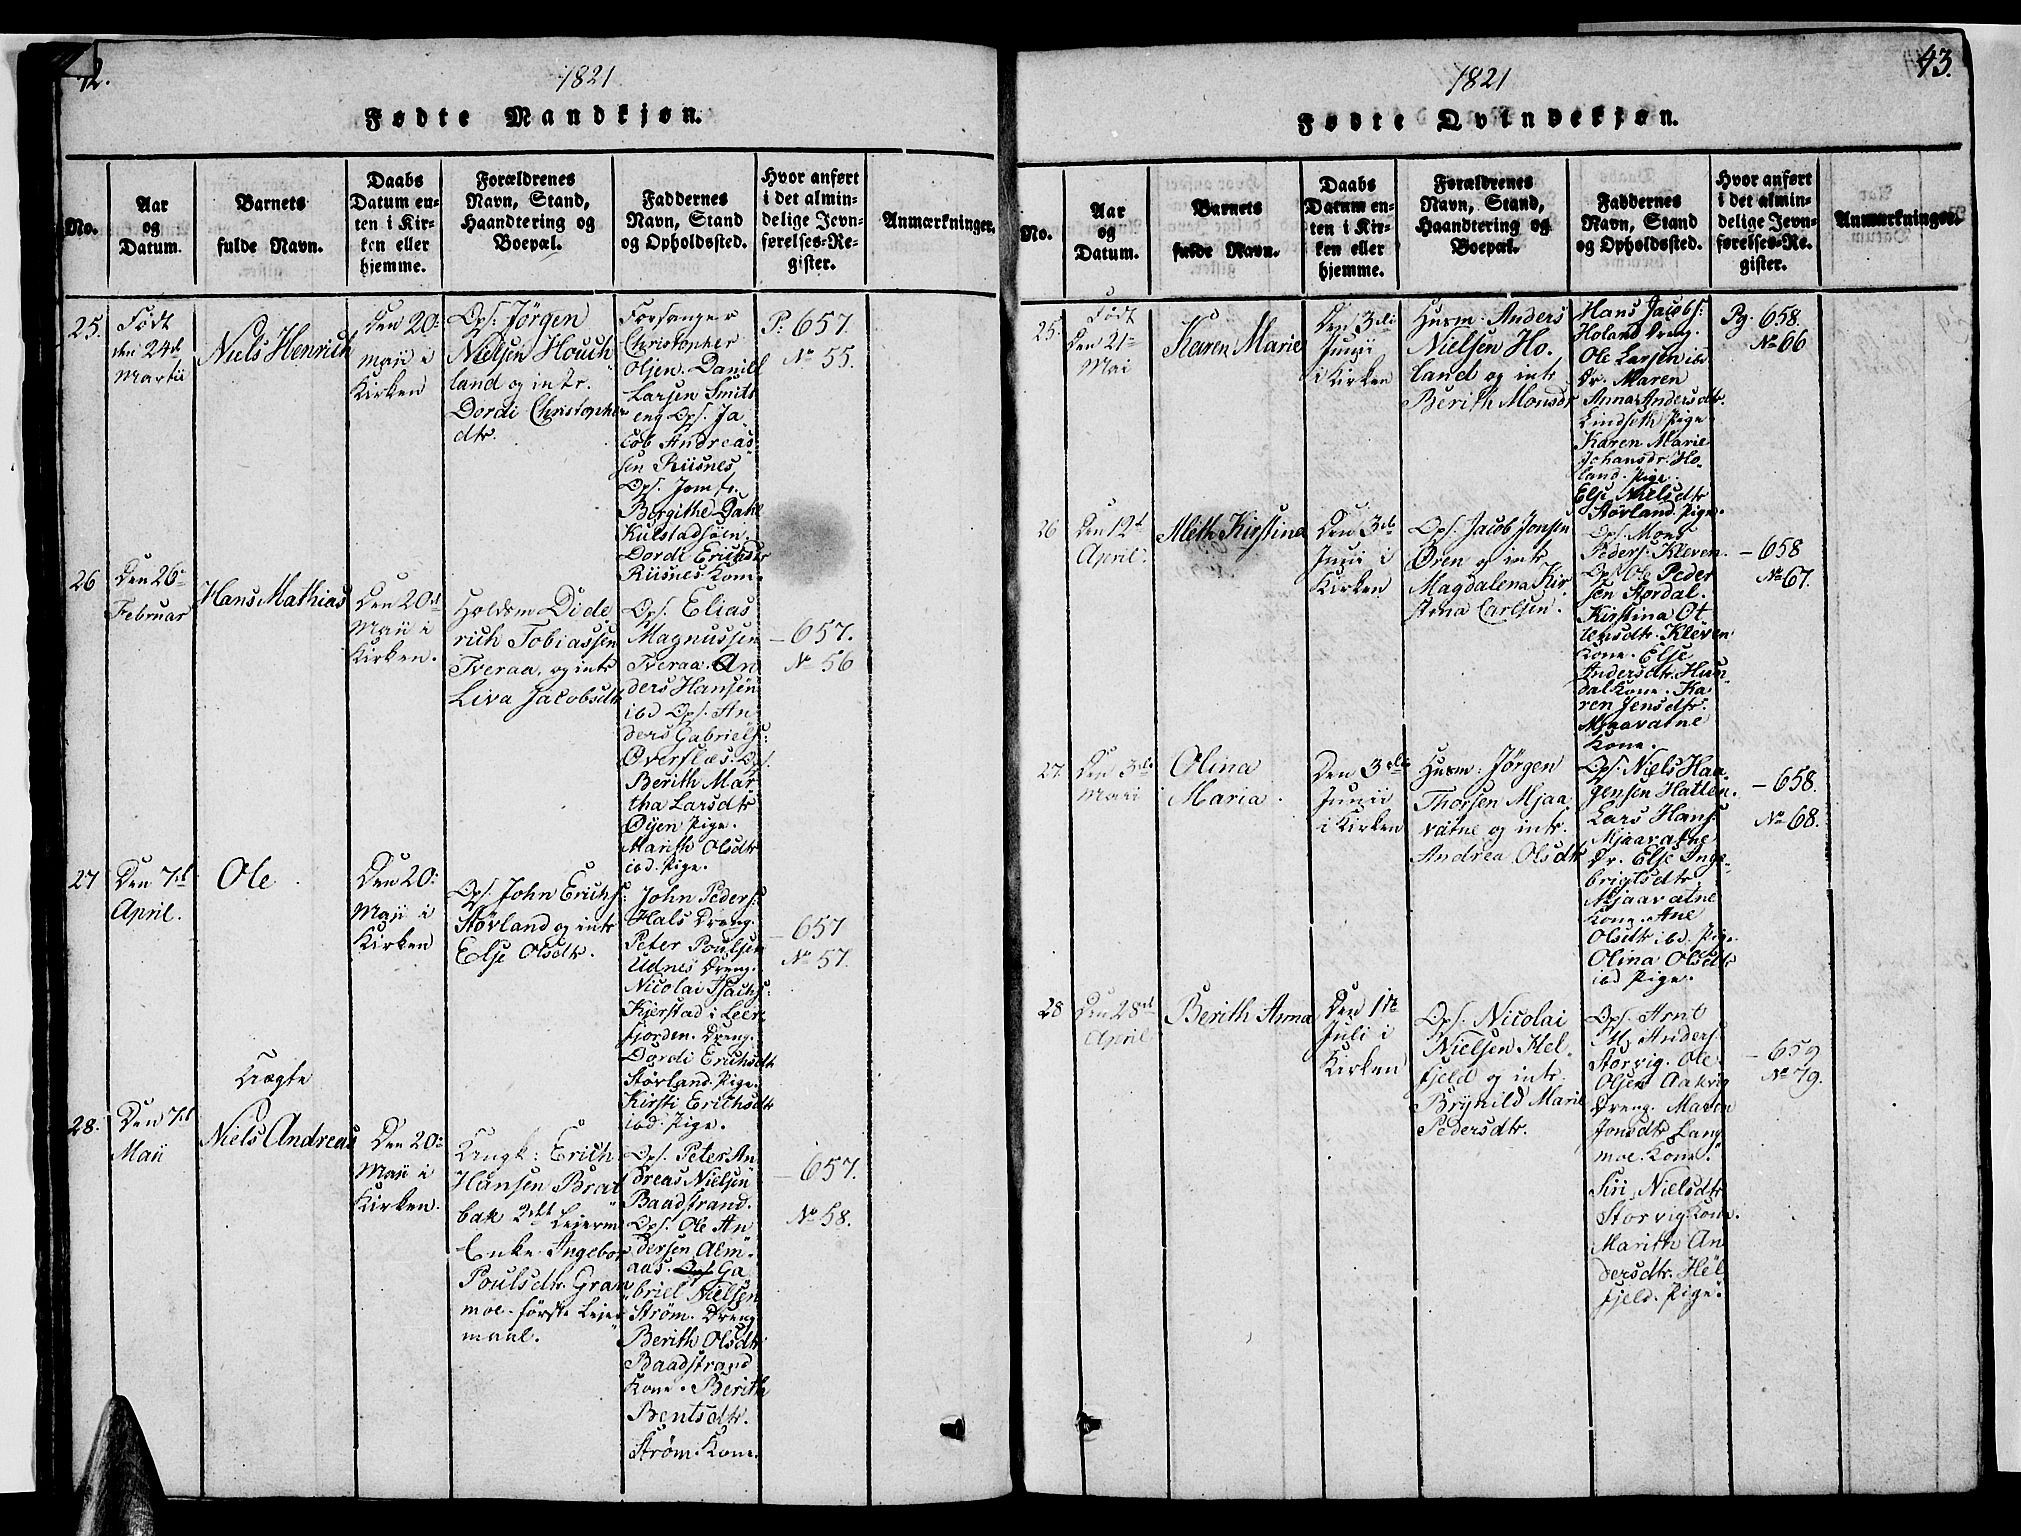 42.
1821
Fødte Mandkjøn.
No.
Aar
og
Datum.
Barnets
fulde Navn.
Daabs
Datum en-
ten i Kir-
ken eller
hjemme.
Forældrenes
Navn, Stand,
Haandtering og
Boepæl.
Faddernes
Navn, Stand
og Opholdssted.
Hvor anført
i det almin-
delige Jevn-
førelses-Re-
gister.
Anmærkninger.
25.
Født
den 24de
Martii
Niels Henrich
Den 20de
Maji i
Kirken
Ops. Jørgen
Nielsen Houch
land og intr.
Dordi Christopher
dtr.
Forsanger
Christopher
Olsen. Daniel
Larsen Smits
eng Ops. Ja
cob Andreas
sen Riisnes
Ops. Jomfr.
Borgithe Dahl
Kulstadsøin.
Dordi Erichsdtr
Riisnes Kone
P. 657.
No 55.
26
Den 26de
Februar
Hans Mathias
Den 20de
Maji i
Kirken.
Holdsm Dide
rich Tobiassen
Tveraa, og intr
Liva Jacobsdtr
Ops. Elias
Magnussen
Tveraa. An
ders Hansen
ibd Ops. An
ders Gabriels:
Øverflæs. Ops.
Berith Mar
tha Larsdtr
Øyen Pige.
Marith Olsdtr
ibd. Pige.
- 657.
No 56
27
Den 7de
April.
Ole
Den 20de
Maji i
Kirken
Ops. John Erichs:
Støvland og intr
Else Olsdtr.
John Peders:
Hals Dreng.
Peter Poulsen
Udnes Dreng.
Nicolai Isachs:
Kjerstad i Leer
fjorden. Dreng.
Dordi Erichsdtr
Støvland. Pige.
Kirsti Erichsdtr
ibd. Pige.
- 657
No 57.
Uægte
28.
Den 7de
Maji
Niels Andreas
Den 20de
Maji i
Kirken.
Ungk: Erich
Hansen Brat
bak 2det Leierm
Enke Ingebor
Poulsdtr. Gran
moe - første Leier
maal.
Ops. Peter An
dreas Nielsen
Baadstrand.
Ops. Ole An
dersen Alm-
aas. Ops Ga
briel Nielsen
Strøm. Dreng
Berith Olsdtr
Baadstrand
Kone. Berith
Bentsdtr.
Strøm. Kone.
- 657.
No 58.
43.
1821
Fødte Qvindekjøn.
No.
Aar
og
Datum.
Barnets
fulde Navn.
Daabs
Datum en-
ten i Kir-
ken eller
hjemme.
Forældrenes
Navn, Stand,
Haandtering og
Boepæl.
Faddernes
Navn, Stand
og Opholdssted.
Hvor anført
i det almin-
delige Jevn-
førelses-Re-
gister.
Anmærkninger.
25
Født
Den 21de
Mai
Karen Marie
Den 3die
Junii
i Kirken
Husm: Anders
Nielsen Ho-
land og intr
Berith Monsdr
Hans Jacobs:
Holand Dreng.
Ole Larsen ibd
Dr. Maren
Anna Andersdtr.
Lindseth Pige
Karen Marie
Johansdr. Ho-
land. Pige.
Else Nielsdtr
Støvland. Pige.
Pg. 658.
No 66
26
Den 12te
April.
Meth Kirstina
Den 3die
Junii i
Kirken
Ops. Jacob Jonsen
 Øren og intr
Magdalena Kir
stina Carlsen.
Ops. Mons
Peders. Kleven.
Ops. Ole Peder
sen Stordal.
Kirstina Ot
tensdtr. Kleven
Kone. Else
Andersdtr. Hun
dal Kone. Ka
ren Jensdtr.
Mjaavatne
Kone.
- 658
No 67.
27.
Den 3die
Maii
Olina
Maria.
Den 3die
Junii
i Kirken
Husm: Jørgen
Thorsen Mjaa
vatne og intr.
Andrea Olsdtr
Ops. Niels Haa
gensen Hatten.
Lars Hans:
Mjaavatne
Dr. Else Inge-
brigtsdtr.
Mjaavatne
Kone. Ane
Olsdtr ibd. Pige
Olina Olsdtr
ibd Pige.
- 658.
No 68.
28
Den 28de
April
Berith Anna
Den 1ste
Juli i
Kirken
Ops. Nicolai
Nielsen Hel-
fjeld og intr.
Brynild Marie
Pedersdtr.
Ops. Arnt
M. Anders.
Storvig. Ole
Olsen Aakvig
Dreng. Maren
Jonsdtr Lang
moe. Kone.
Siri Nielsdtr
Storvig Kone.
Marith An
dersdtr. Hel
fjeld. Pige.
- 659
No 79.